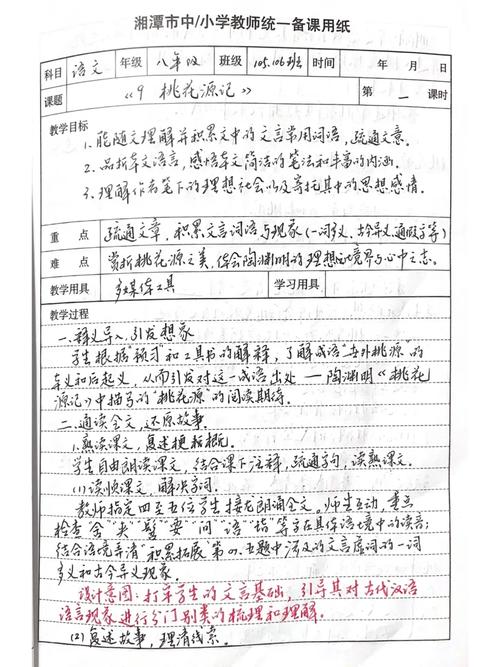 湘潭市中/小学教师统一备课用纸
科目 语文 年级 八年级 班级 105.106班 时间 年 月 日
课题 《9 桃花源记》 第 一 课时
教学目标
1.能随文理解并积累文中的文言常用词语,疏通文意.
2.品析本文语言,感悟本文简洁的笔法和丰富的内涵.
3.理解作者笔下的理想社会以及寄托其中的思想感情.
重 点 疏通文章,积累文言词语与现象(一词多义、古今异义、通假字等)
难 点 赏析桃花源之美,体会陶渊明的理想境界与心中之志.
教学用具 多媒体工具 学习用具
教学过程
一.释义导入,引发想象
学生根据"预习"和工具书的解释,了解成语"世外桃源"的
本义和后起义,从而引发对这一成语出处——陶渊明《桃花
源记》中描写的"桃花源"的阅读期待.
二.通读全文,还原故事.
1.熟读课文,复述梗概.
学生自由朗读课文,结合课下注释,疏通字句,读熟课文.
(1)读顺课文,解决字词.
教师指定四至五位学生接龙朗诵全文.师生互动,重点
检查"舍""夹""髫""要""间""语""诣"等字在具体语境中的读音;
结合语境弄清"积累拓展"第四、五题中涉及的文言虚词的一词
多义和古今异义现象.
设计意图:打牢学生的文言基础,引导其对古代汉语
语言现象进行分门别类的梳理和理解.
(2)复述故事,理清线索.